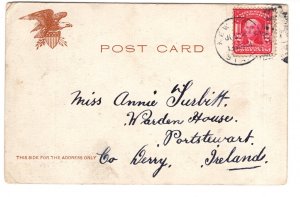 POST CARD
Miss Annie Turbitt,
Warden House.
Portstewart.
THIS SIDE FOR THE ADDRESS ONLY
Co Derry, Ireland.